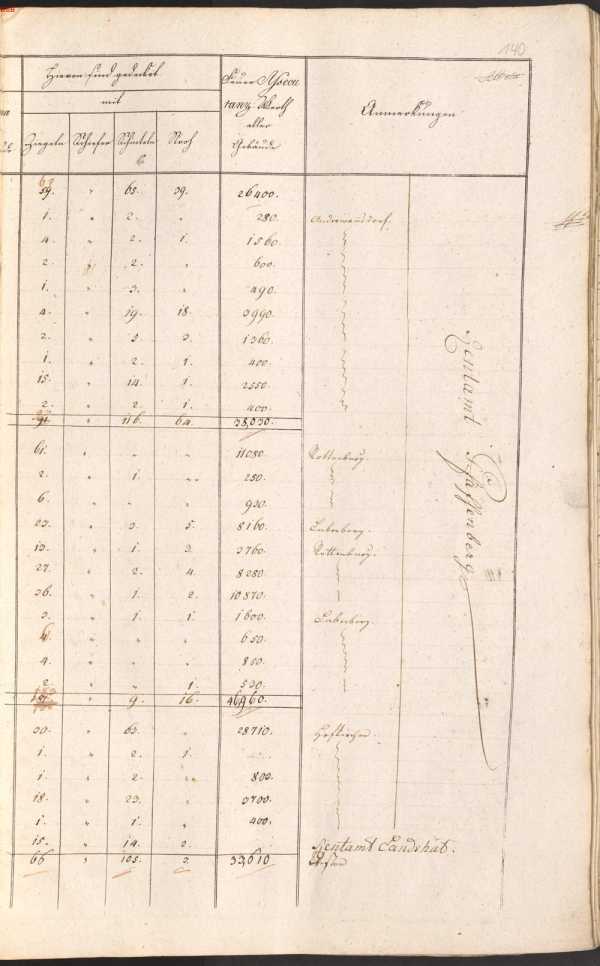 140
Hievon sind gedeckt
mit
Ziegeln Schiefer Schindeln Stroh
Feuer Assecu
ranz Werth
aller
Gebäude
Anmerkungen
59. " 65. 39. 26400.
1. " 2. " 280.
4. " 2. 1. 1560.
2. " 2. " 600.
1. " 3. " 490.
4. " 19. 18. 3990.
2. " 3. 3. 1360.
1. " 2. 1. 400.
15. " 14. 1. 2550.
2. " 2. 1. 400.
" 116. 64. 38,030.
61. " " " 11080. Rottenburg.
2. " 1. " 250.
6. " " " 930.
23. " 3. 5. 8160. Laberberg.
13. " 1. 3. 3760. Rottenburg.
27. " 2. 4. 8280.
36. " 1. 2. 10870.
3. " 1. 1. 1600. Laberberg.
" " " 650.
4. " " " 850.
2. " " 1. 530.
" 9. 16. 46960.
30. " 63. " 28710. Hofkirchen.
1. " 2. 1.
1. " 2. " 800.
18. " 23. " 3700.
1. " 1. " 400.
15. " 14. 2.
66 " 105. 3. 33,610
Rentamt Pfaffenberg
Rentamt Landshut.